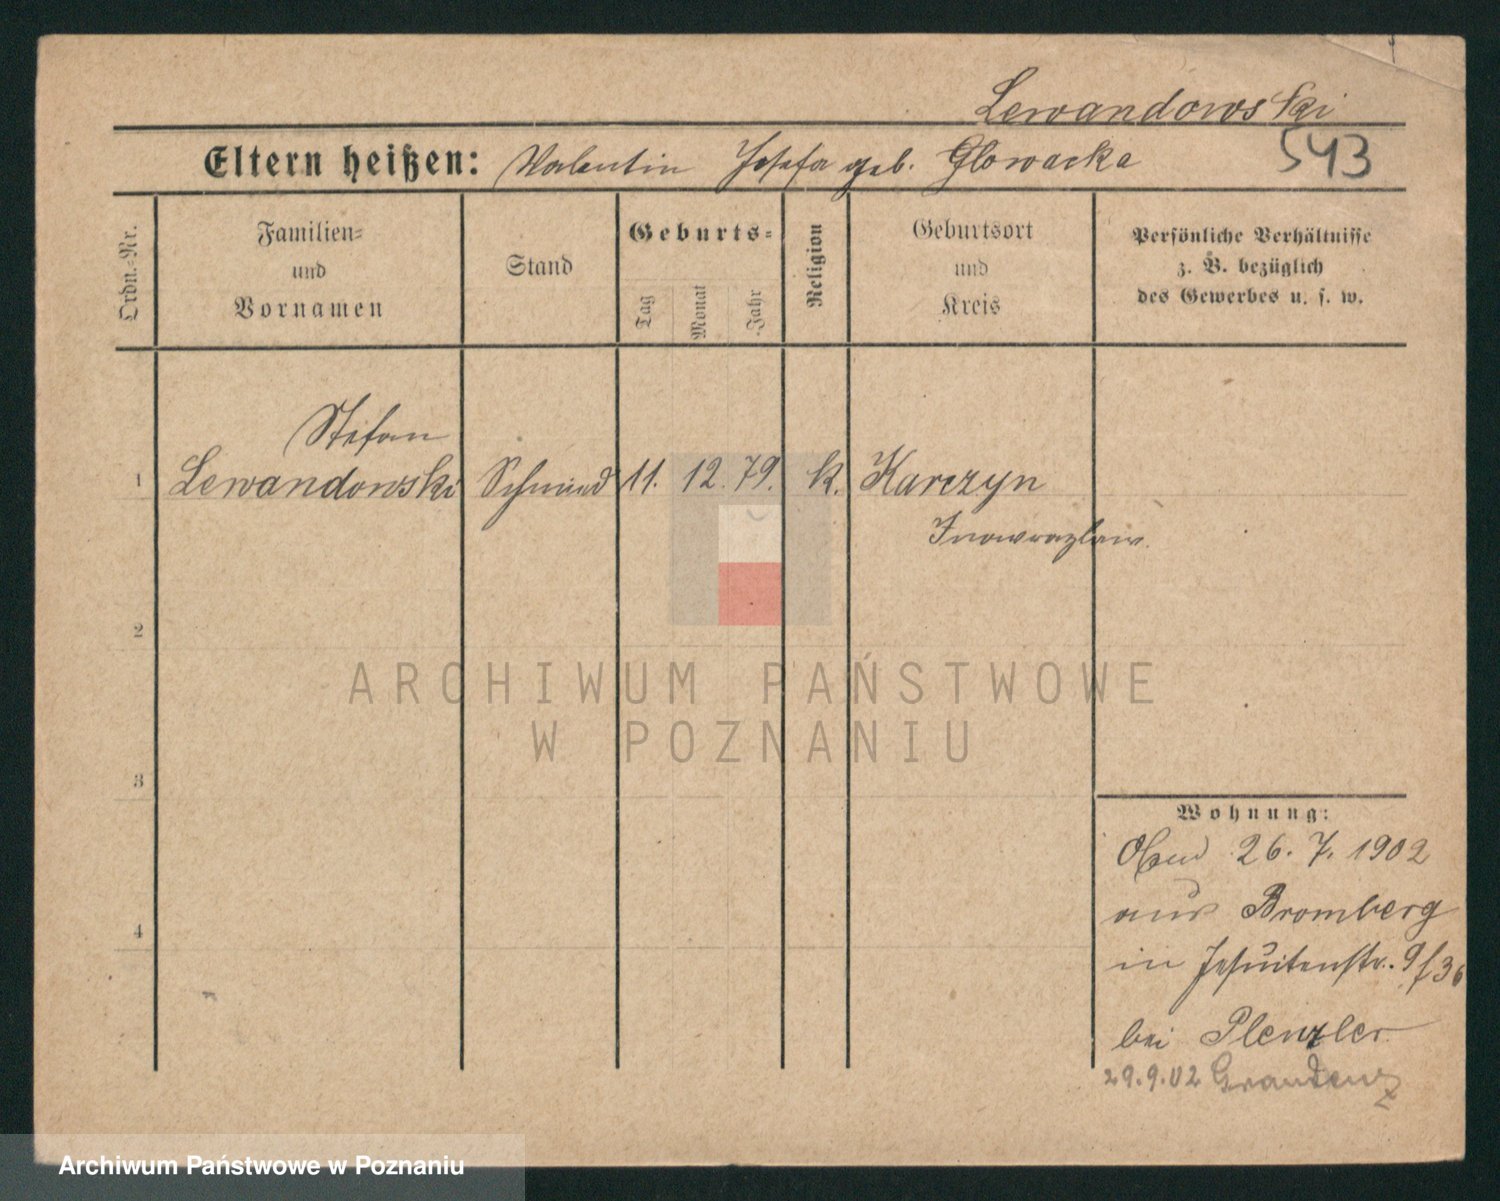 Lewandowski
Eltern heißen: Valentin Josefa geb. Glowacka 543
Ordn.-Nr.
Familien-
und
Vornamen
Stand
Geburts-
Tag
Monat
Jahr
Religion
Geburtsort
und
Kreis
Persönliche Verhältnisse
z. B. bezüglich
des Gewerbes u. s. w.
Stefan
1 Lewandowski Schmied 11. 12. 79. k. Karczyn
Inowrazlaw.
2
3
4
Wohnung:
26. 7. 1902
aus Bromberg
in Jesuitenstr. 9/36
bei Plenzler
29.9.02 Graudenz
ARCHIWUM PAŃSTWOWE
W POZNANIU
Archiwum Państwowe w Poznaniu